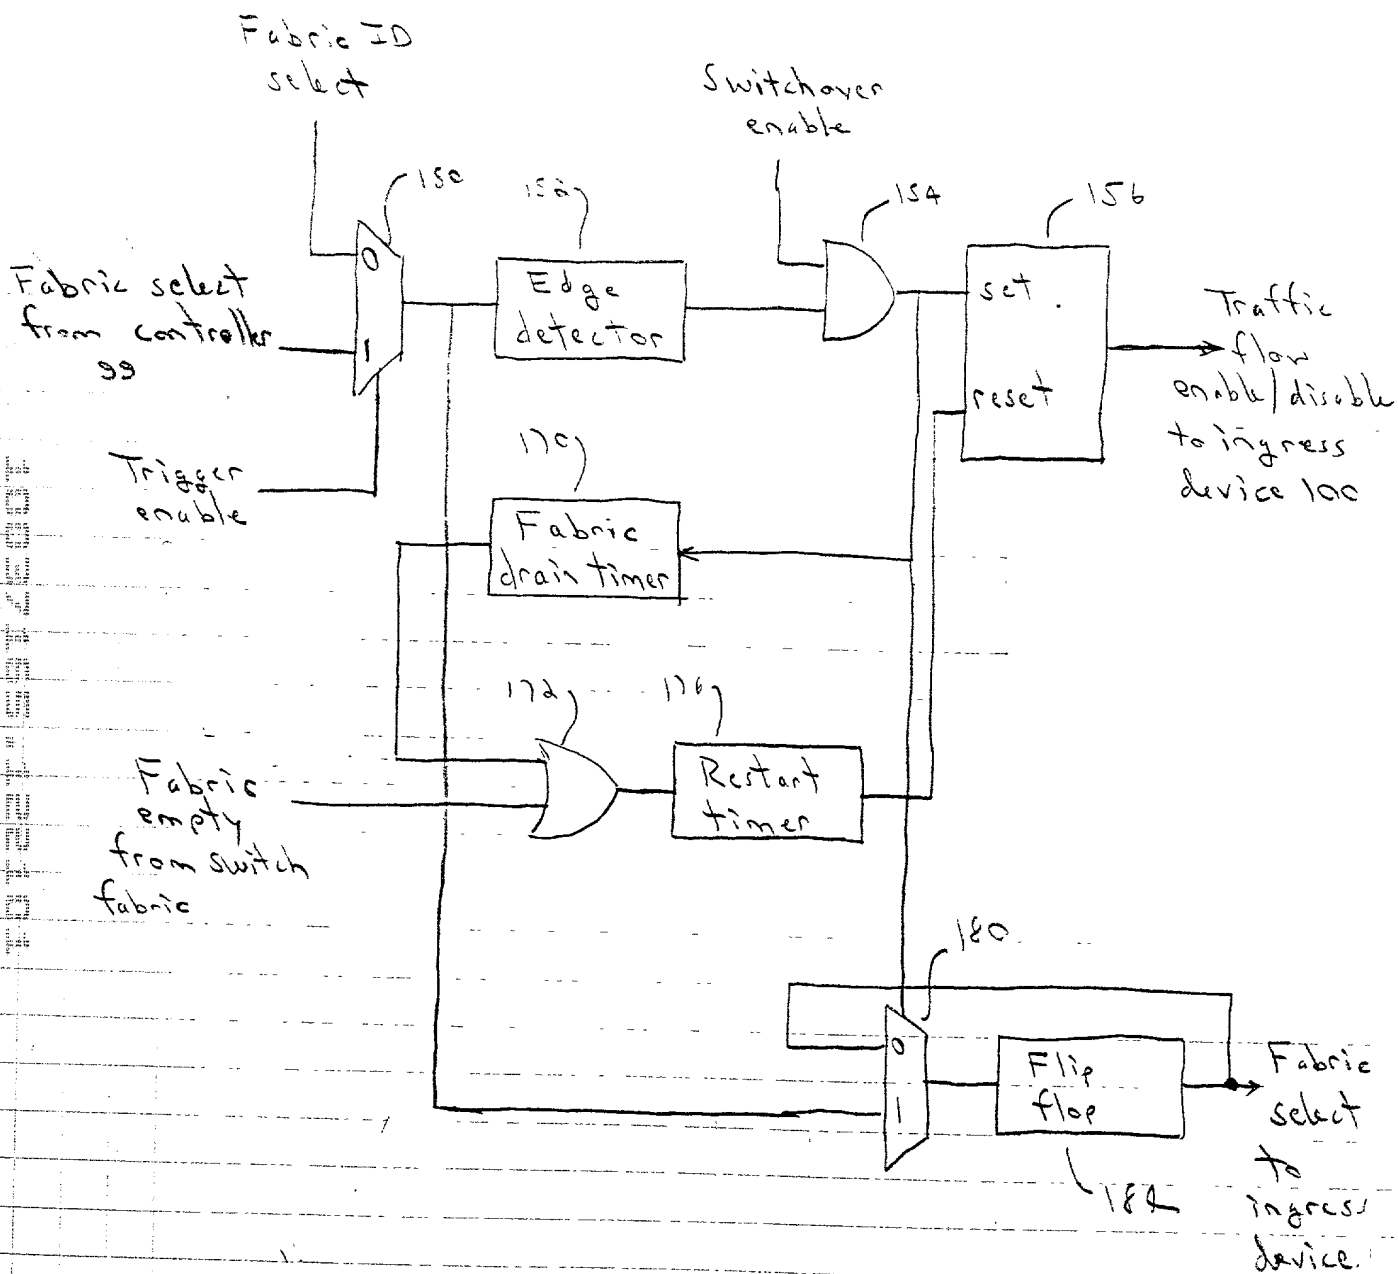 Fabric ID
select
Switchover
enable
150
152
154
156
0
1
Fabric select
from controller
99
Edge
detector
set.
reset
Traffic
flow
enable/disable
to ingress
device 100
Trigger
enable
170
Fabric
drain timer
172
176
Restart
timer
Fabric
empty
from switch
fabric
180
0
1
Flip
flop
182
Fabric
select
to
ingress
device.